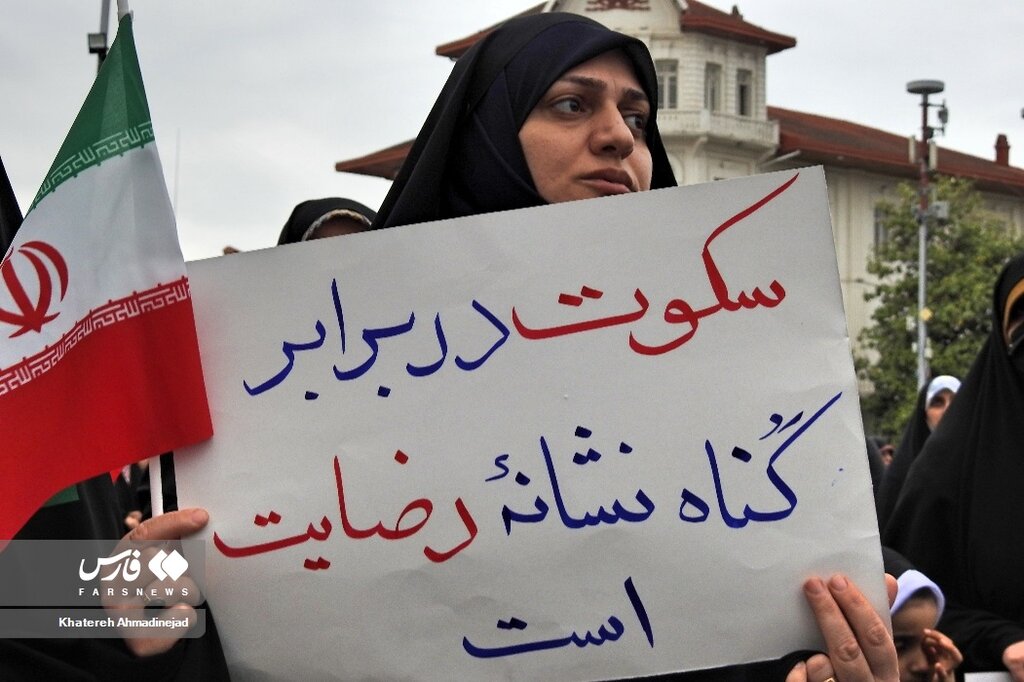 سکوت در برابر
گُناه نشانهٔ رضایت
است
فارس
FARSNEWS
Khatereh Ahmadinejad